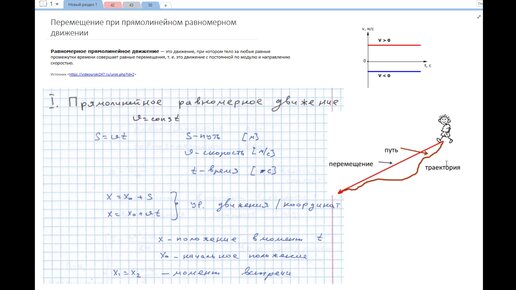 Новый раздел 1
42
43
36
Перемещение при прямолинейном равномерном
движении
Равномерное прямолинейное движение — это движение, при котором тело за любые равные
промежутки времени совершает равные перемещения, т. е. это движение с постоянной по модулю и направлению
скоростью.
I. Прямолинейное равномерное движение
ϑ=const
S=ϑt
S - путь [м]
ϑ - скорость [м/с]
t - время [с]
x = x₀ + S
x = x₀ + ϑt
ур. движения / координат
x - положение в момент t
x₀ - начальное положение
x₁ = x₂ - момент встречи
v, м/с
v > 0
t, с
v < 0
путь
перемещение
траектория